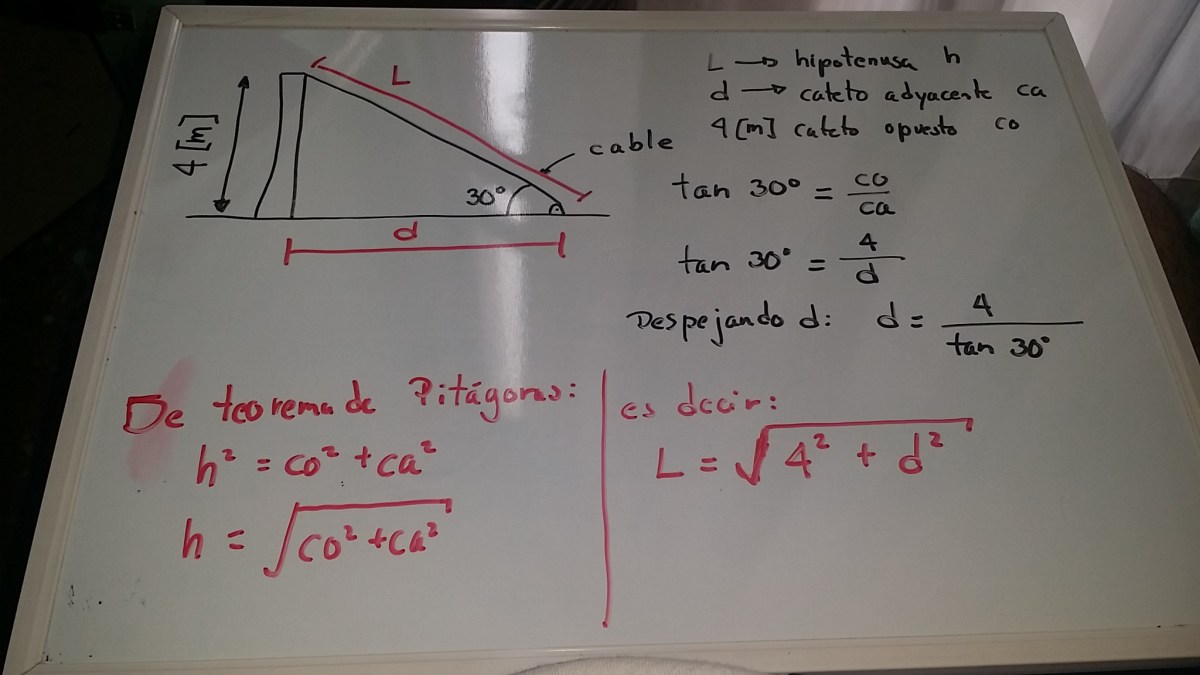 4 [m]
L
cable
30°
d
L → hipotenusa h
d → cateto adyacente ca
4 [m] cateto opuesto co
tan 30° = co/ca
tan 30° = 4/d
Despejando d: d = 4/tan 30°
De teorema de Pitágoras:
h² = co² + ca²
h = √co² + ca²
es decir:
L = √4² + d²